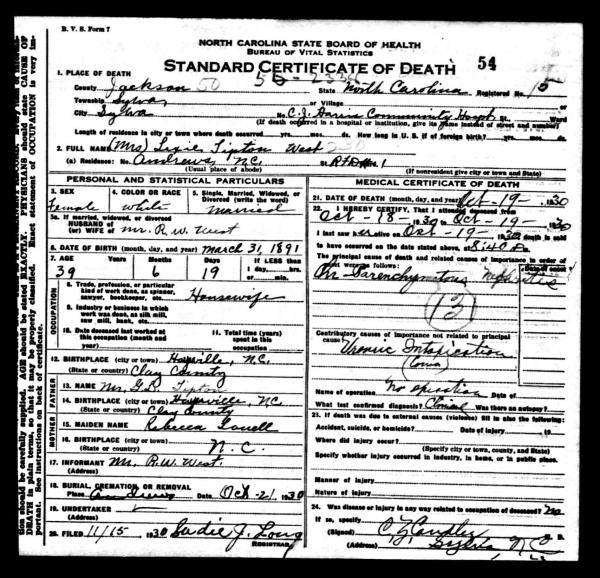 B. V. S. Form 7
NORTH CAROLINA STATE BOARD OF HEALTH
BUREAU OF VITAL STATISTICS
STANDARD CERTIFICATE OF DEATH 54
1. PLACE OF DEATH
County Jackson 50 State North Carolina Registered No. 15
Township Sylva or Village
City Sylva No. C.J. Harris Community Hosp. St. Ward
(If death occurred in a hospital or institution, give its name instead of street and number)
Length of residence in city or town where death occurred yrs. mos. ds. How long in U. S. if of foreign birth? yrs. mos. ds.
2. FULL NAME (Mrs) Lixie Tipton West 230
(a) Residence: No. Andrews, N.C. St. R.F.D. # 1
(Usual place of abode) (If nonresident give city or town and State)
PERSONAL AND STATISTICAL PARTICULARS
3. SEX Female
4. COLOR OR RACE white
5. Single, Married, Widowed, or Divorced (write the word) married
5a. If married, widowed, or divorced
HUSBAND of
(or) WIFE of Mr. R. W. West
6. DATE OF BIRTH (month, day, and year) March 31, 1891
7. AGE Years Months Days If LESS than
1 day, hrs.
or min.
39 6 19
OCCUPATION
8. Trade, profession, or particular kind of work done, as spinner, sawyer, bookkeeper, etc. Housewife
9. Industry or business in which work was done, as silk mill, saw mill, bank, etc.
10. Date deceased last worked at this occupation (month and year)
11. Total time (years) spent in this occupation
12. BIRTHPLACE (city or town) Hayesville, N.C.
(State or country) Clay County
FATHER
13. NAME Mr. G.R. Tipton
14. BIRTHPLACE (city or town) Hayesville, N.C.
(State or country) Clay County
MOTHER
15. MAIDEN NAME Rebecca
16. BIRTHPLACE (city or town)
(State or country) N.C.
17. INFORMANT Mr. R.W. West.
(Address)
18. BURIAL, CREMATION, OR REMOVAL
Place Andrews Date Oct - 21, 1930
19. UNDERTAKER
(Address)
20. FILED 11/15 1930 Sadie J. Long
REGISTRAR
MEDICAL CERTIFICATE OF DEATH
21. DATE OF DEATH (month, day, and year) Oct-19-, 1930
22. I HEREBY CERTIFY, That I attended deceased from
Oct 18, 1930 to Oct - 19 -, 1930
I last saw her alive on Oct - 19 -, 1930 death is said
to have occurred on the date stated above, at 8:40 a
The principal cause of death and related causes of importance in order of
onset were as follows: Date of onset
Parenchymatous Nephritis
131
Contributory causes of importance not related to principal
cause: Uremic Intoxication
(Coma)
Name of operation no operation Date of
What test confirmed diagnosis? Clinical Was there an autopsy?
23. If death was due to external causes (violence) fill in also the following:
Accident, suicide, or homicide? Date of injury 19
Where did injury occur?
(Specify city or town, county, and State)
Specify whether injury occurred in industry, in home, or in public place.
Manner of injury
Nature of injury
24. Was disease or injury in any way related to occupation of deceased? no
If so, specify
(Signed) C Z Candler M. D.
(Address) Sylva, N.C.